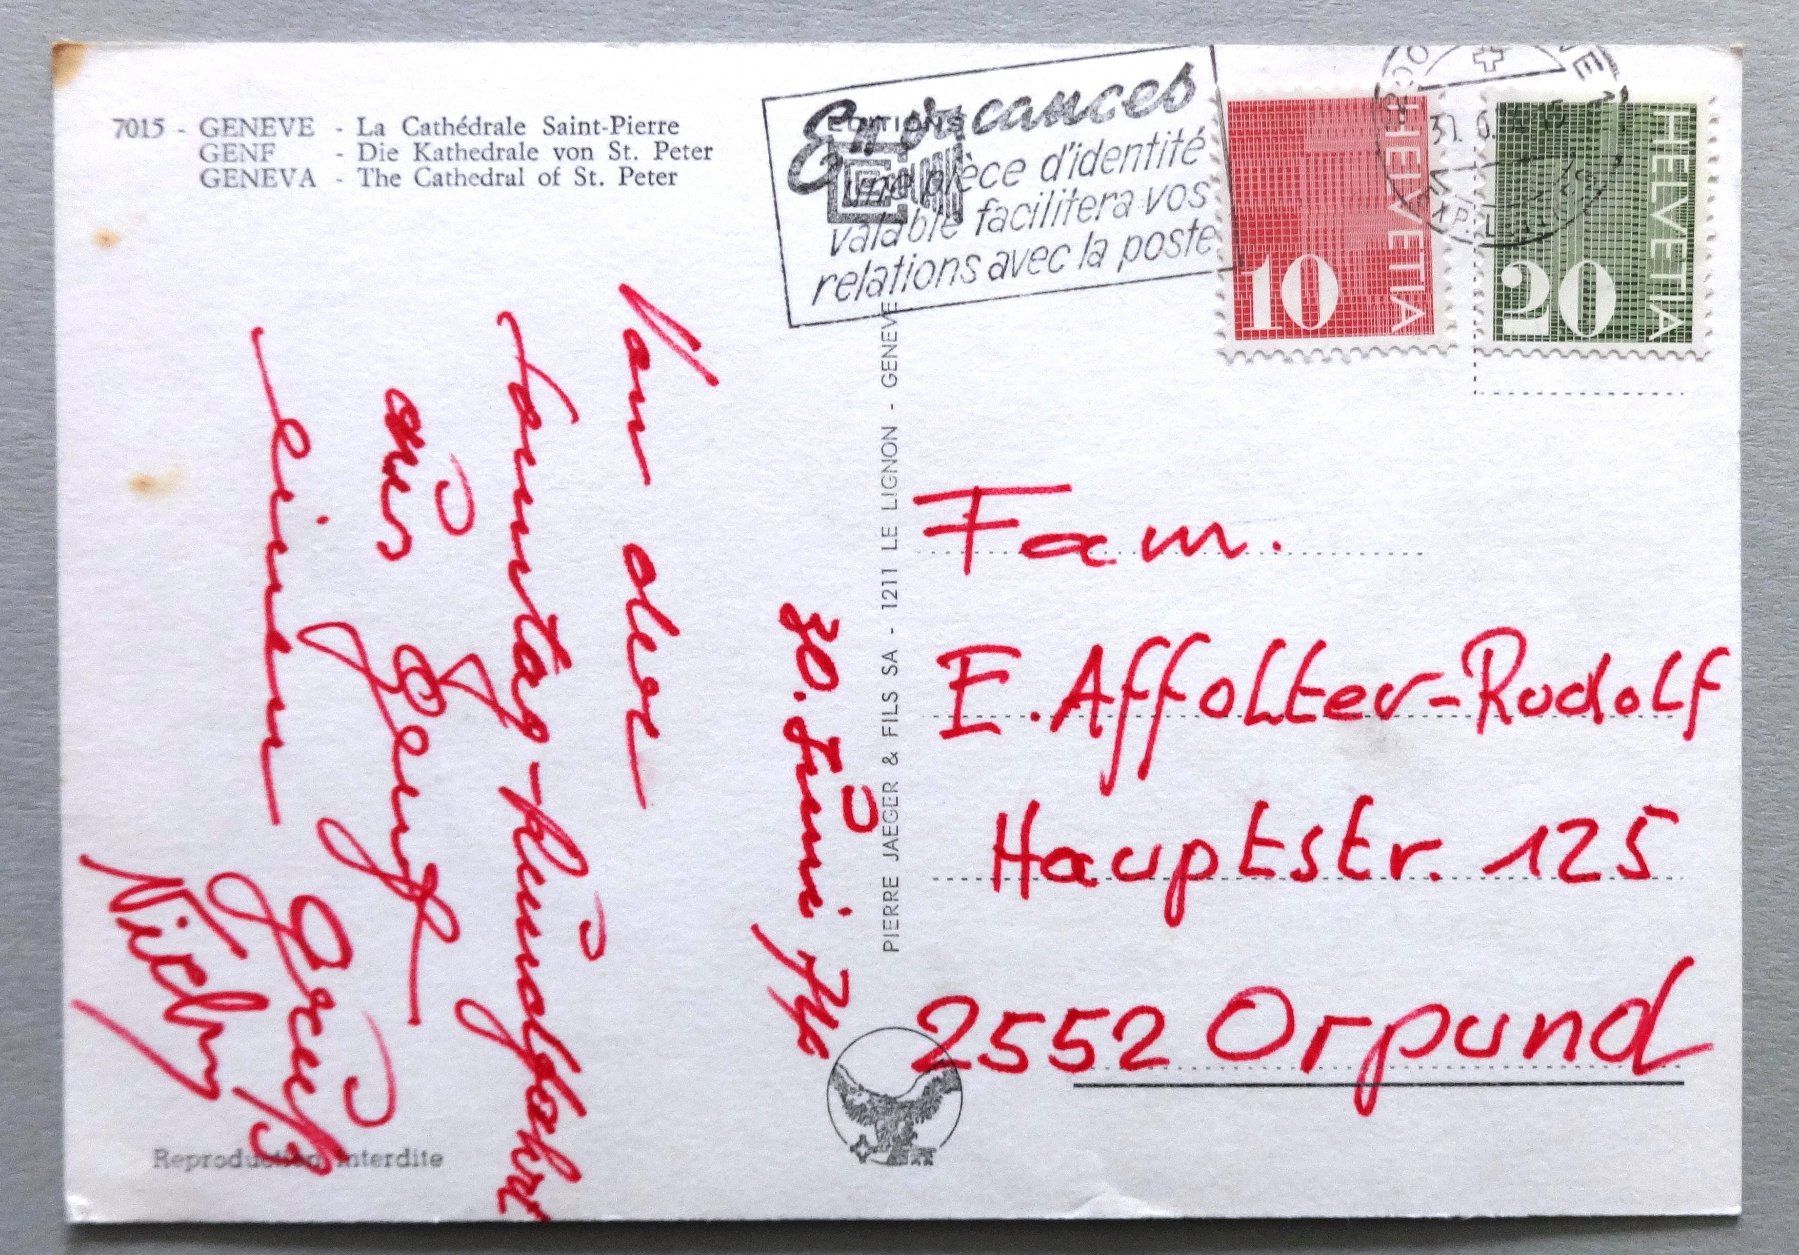 7015 - GENEVE - La Cathédrale Saint-Pierre
GENF - Die Kathedrale von St. Peter
GENEVA - The Cathedral of St. Peter
EDITIONS
En vacances
une pièce d'identité
valable facilitera vos
relations avec la poste
HELVETIA
10
HELVETIA
20
30. Juni 74
Von der
Sonntag-
aus Genf
einen
Gruß
PIERRE JAEGER & FILS SA - 1211 LE LIGNON - GENEVE
Fam.
E. Affolter-Rudolf
Hauptstr. 125
2552 Orpund
Reproduction interdite